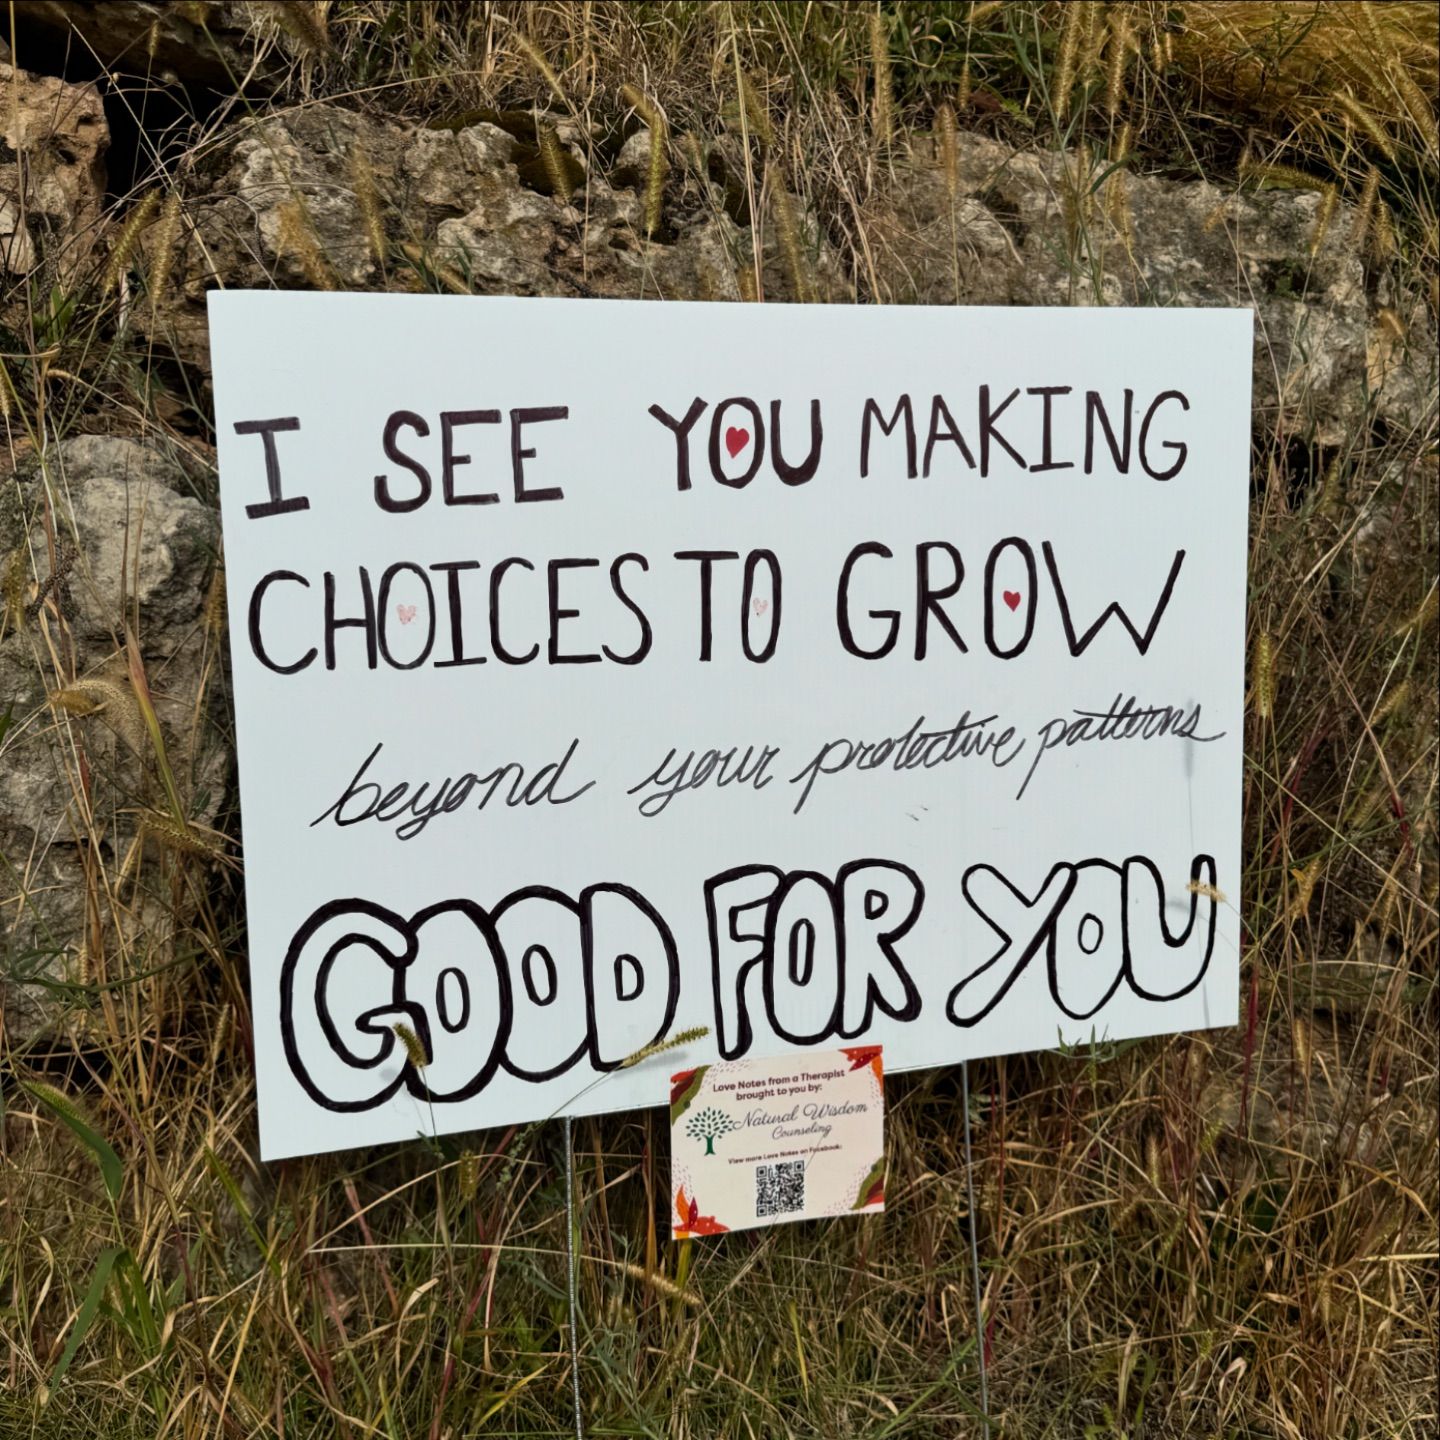 I SEE YOU MAKING
CHOICES TO GROW
beyond your protective patterns
GOOD FOR YOU
Love Notes from a Therapist
brought to you by:
Natural Wisdom
Counseling
View more Love Notes on Facebook: